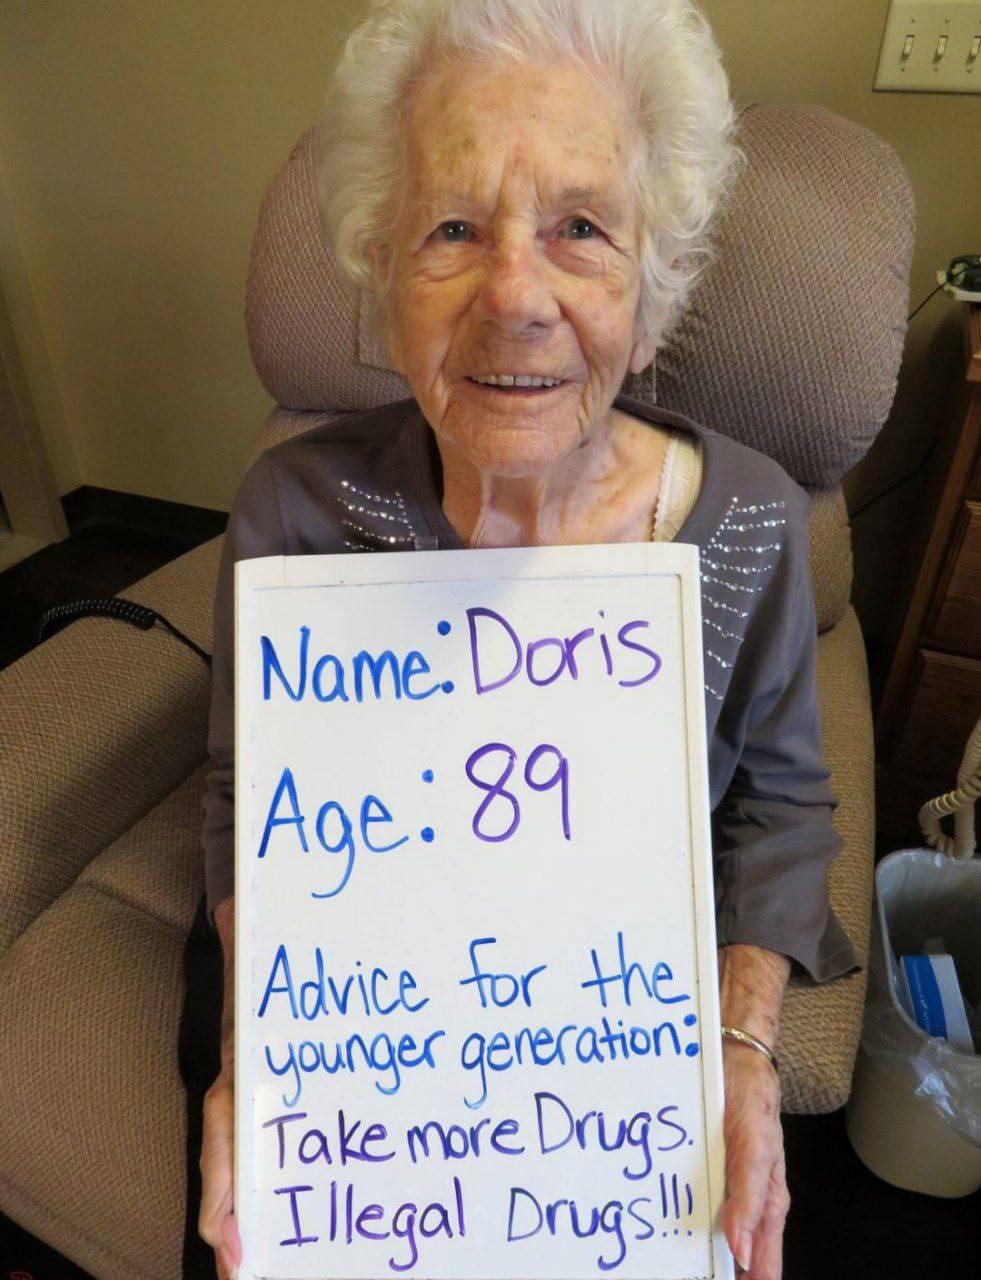 Name: Doris
Age: 89
Advice for the
younger generation:
Take more Drugs.
Illegal Drugs!!!